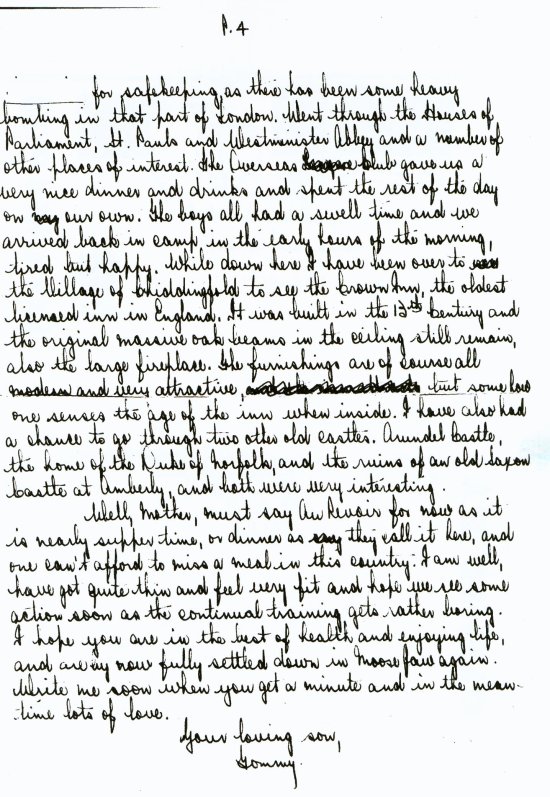 P.4
for safekeeping, as there has been some heavy
bombing in that part of London. Went through the Houses of
Parliament, St. Pauls and Westminister Abbey and a number of
other places of interest. The Overseas club gave us a
very nice dinner and drinks and spent the rest of the day
on our own. The boys all had a swell time and we
arrived back in camp in the early hours of the morning,
tired but happy. While down here I have been over to
the Village of Chiddingfold to see the Crown Inn, the oldest
licensed inn in England. It was built in the 13th Century and
the original massive oak beams in the ceiling still remain,
also the large fireplace. The furnishings are of course all
modern and very attractive, but some how
one senses the age of the inn when inside. I have also had
a chance to go through two other old castles. Arundel Castle,
the home of the Duke of Norfolk, and the ruins of an old Saxon
Castle at Amberly, and both were very interesting.
Well, Mother, must say Au Revoir for now as it
is nearly supper time, or dinner as they call it here, and
one can't afford to miss a meal in this country. I am well,
have got quite thin and feel very fit and hope we see some
action soon as the continual training gets rather boring.
I hope you are in the best of health and enjoying life,
and are by now fully settled down in Moose Jaw again.
Write me soon when you get a minute and in the mean-
time lots of love.
Your loving son,
Tommy.